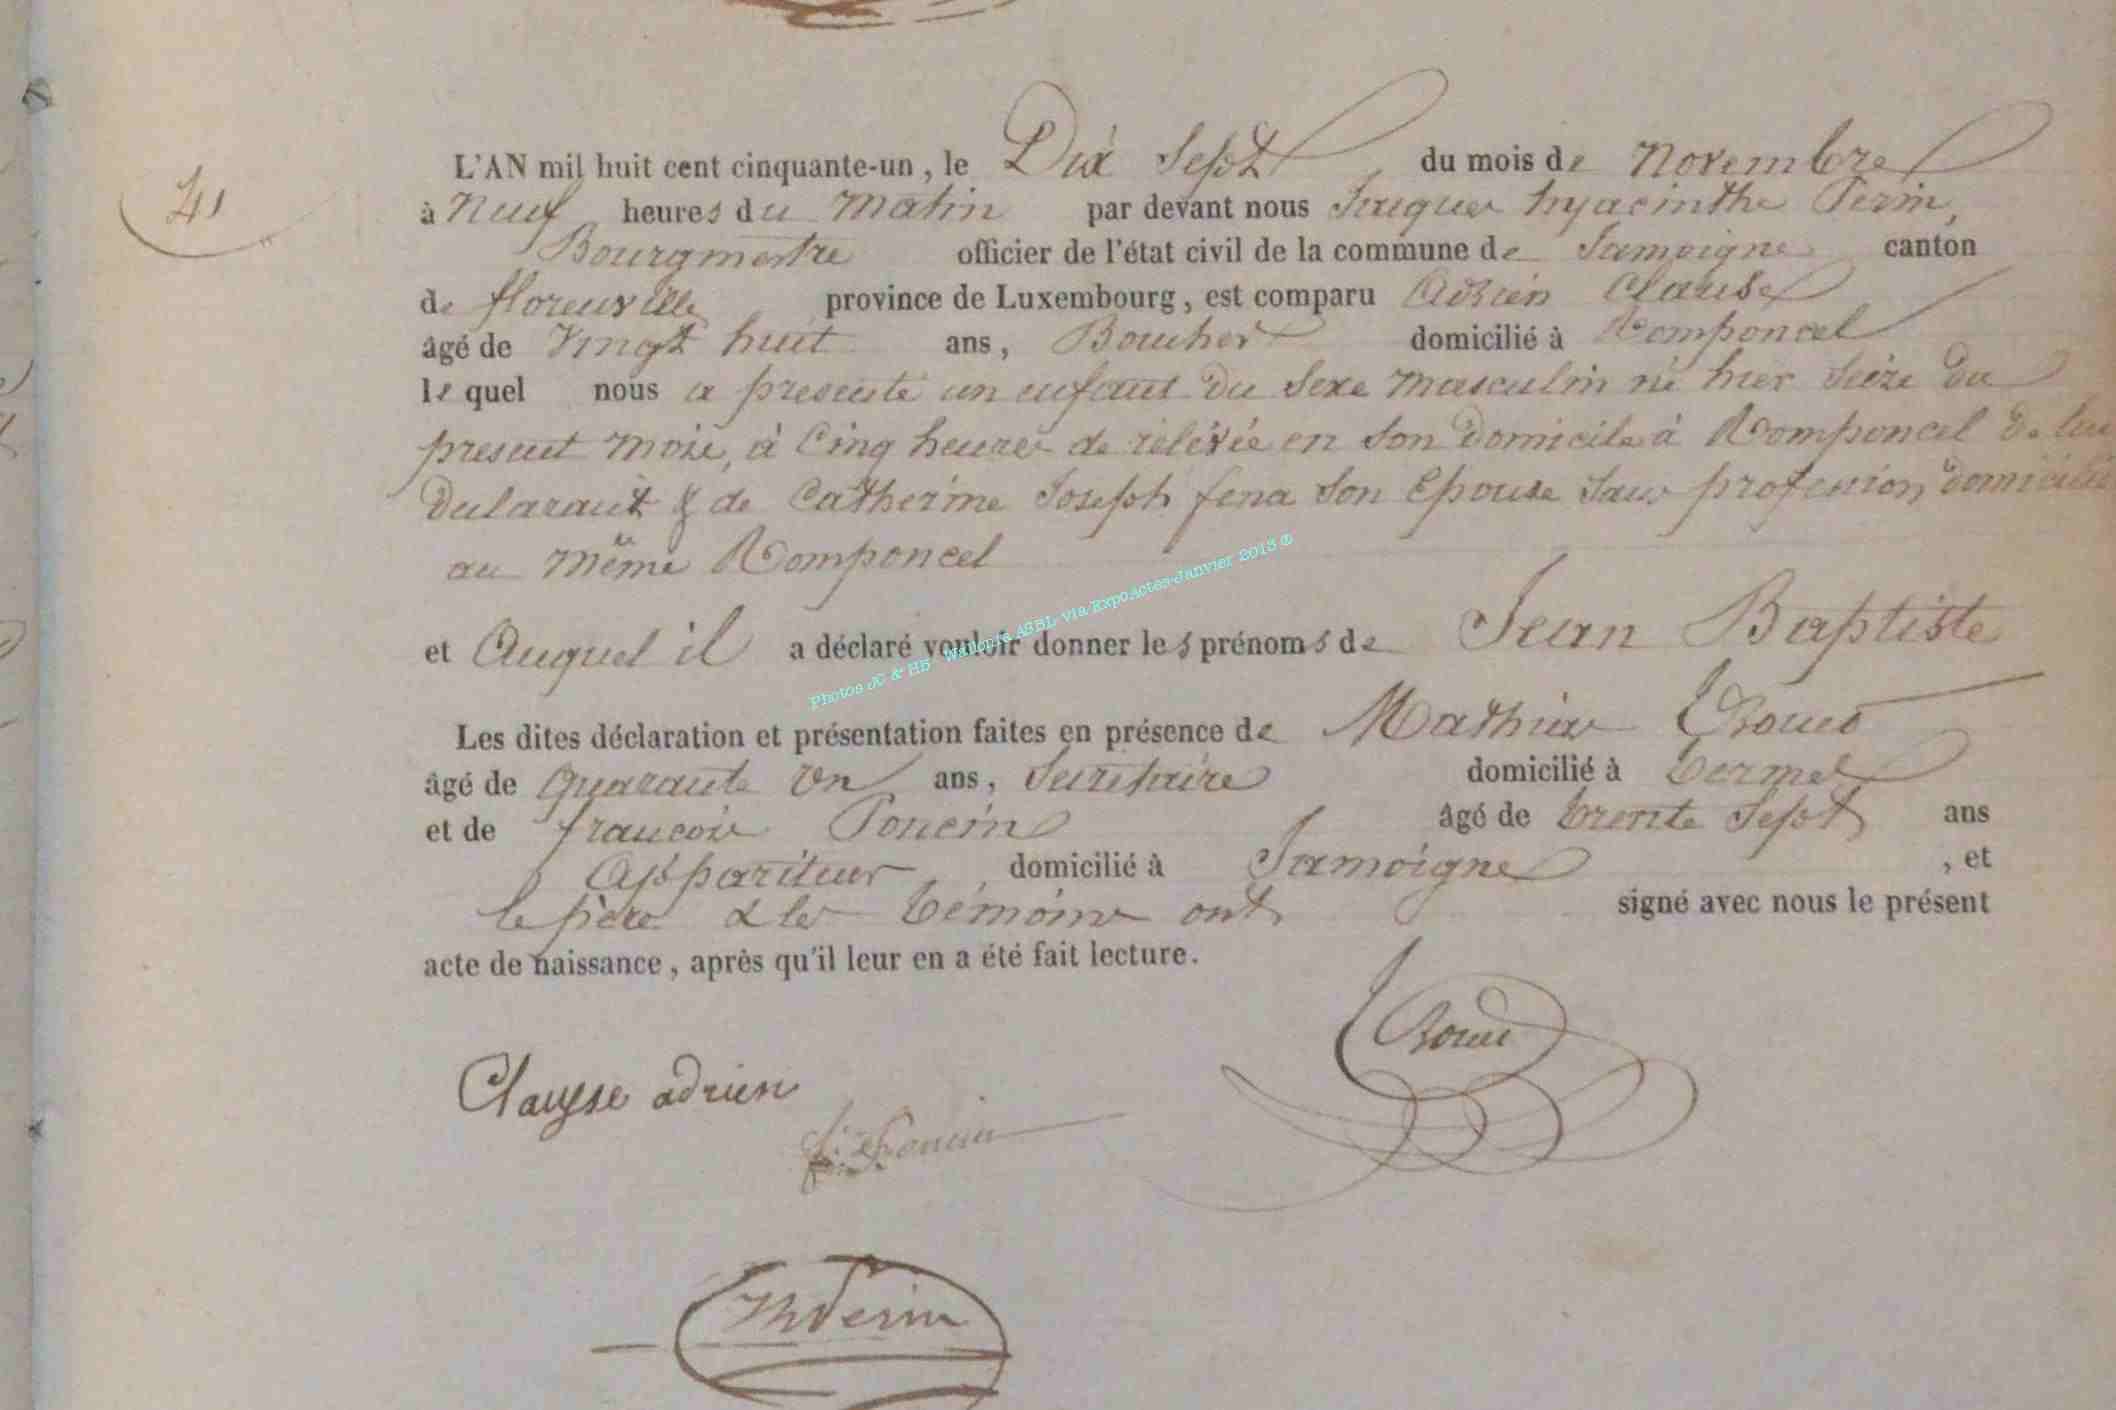 41
L'AN mil huit cent cinquante-un, le Dix Sept du mois de Novembre
à Neuf heures du Matin par devant nous Jacques hyacinthe Perin,
Bourgmestre officier de l'état civil de la commune de Jamoigne canton
de florenville province de Luxembourg, est comparu Adrien Clausse
âgé de Vingt huit ans, Boucher domicilié à Romponcel
le quel nous a presenté un enfant du Sexe Masculin né hier Seize du
present Mois, à Cinq heures de relévée en Son Domicile à Romponcel De lui
Declarant & de Catherine Joseph fena Son Epouse Sans profession, domiciliée
au même Romponcel
et Auquel il a déclaré vouloir donner les prénoms de Jean Baptiste
Photos JC & HB - Wallonia ASBL via ExpoActes-Janvier 2015 ©
Les dites déclaration et présentation faites en présence de Mathieu
âgé de Quarante Un ans, Secrétaire domicilié à Termes
et de francois Poncin âgé de trente Sept ans
Appariteur domicilié à Jamoigne, et
le père & les témoins ont signé avec nous le présent
acte de naissance, après qu'il leur en a été fait lecture.
Clausse adrien
f. Poncin
Perin